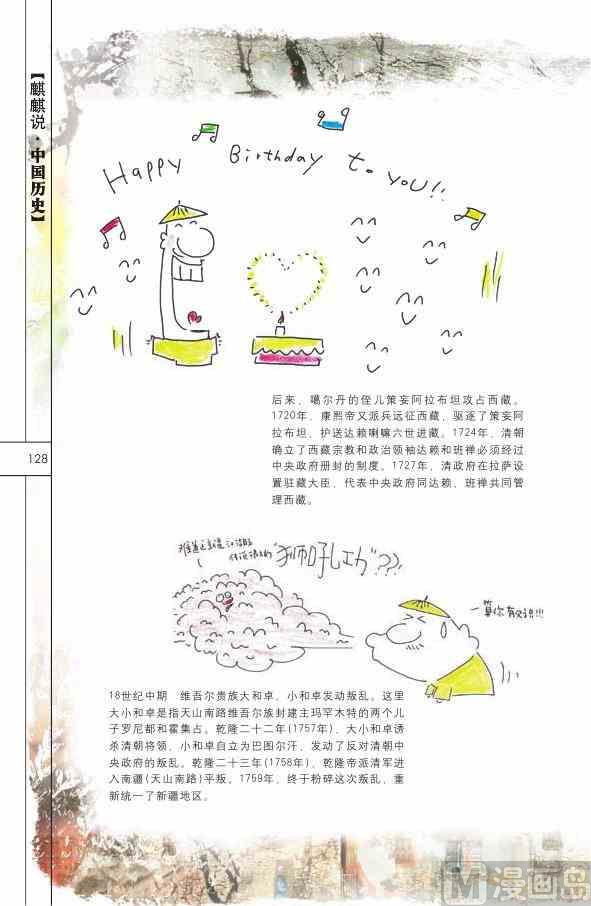 【麒麟说·中国历史】
Happy Birthday to you!!
后来，噶尔丹的侄儿策妄阿拉布坦攻占西藏。
1720年，康熙帝又派兵远征西藏，驱逐了策妄阿
拉布坦，护送达赖喇嘛六世进藏。1724年，清朝
确立了西藏宗教和政治领袖达赖和班禅必须经过
中央政府册封的制度。1727年，清政府在拉萨设
置驻藏大臣，代表中央政府同达赖、班禅共同管
理西藏。
128
"狮吼功"???
一算你有文语!!!
18世纪中期 维吾尔贵族大和卓、小和卓发动叛乱。这里
大小和卓是指天山南路维吾尔族封建主玛罕木特的两个儿
子罗尼都和霍集占。乾隆二十二年(1757年)，大小和卓诱
杀清朝将领，小和卓自立为巴图尔汗，发动了反对清朝中
央政府的叛乱。乾隆二十三年(1758年)，乾隆帝派清军进
入南疆(天山南路)平叛。1759年，终于粉碎这次叛乱，重
新统一了新疆地区。
漫画岛